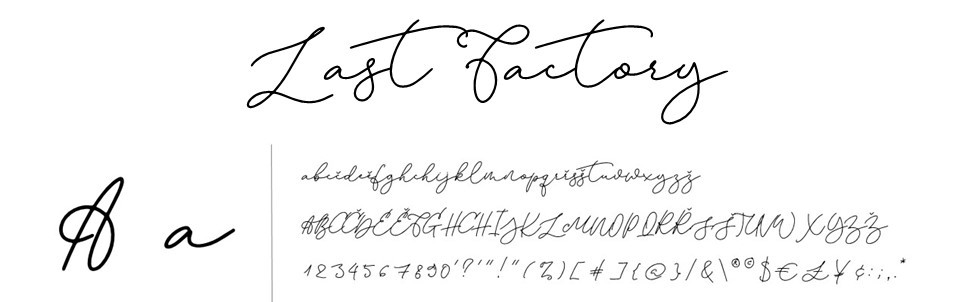 Last Factory
A a
abcčdeěfghchijklmnopqrřsštuvwxyzž
ABCČDEĚFGHCHIJKLMNOPQRŘSŠTUVWXYZŽ
1234567890'?'"!"(%)[#]{@}/&\®©$€£¥¢:;,.*